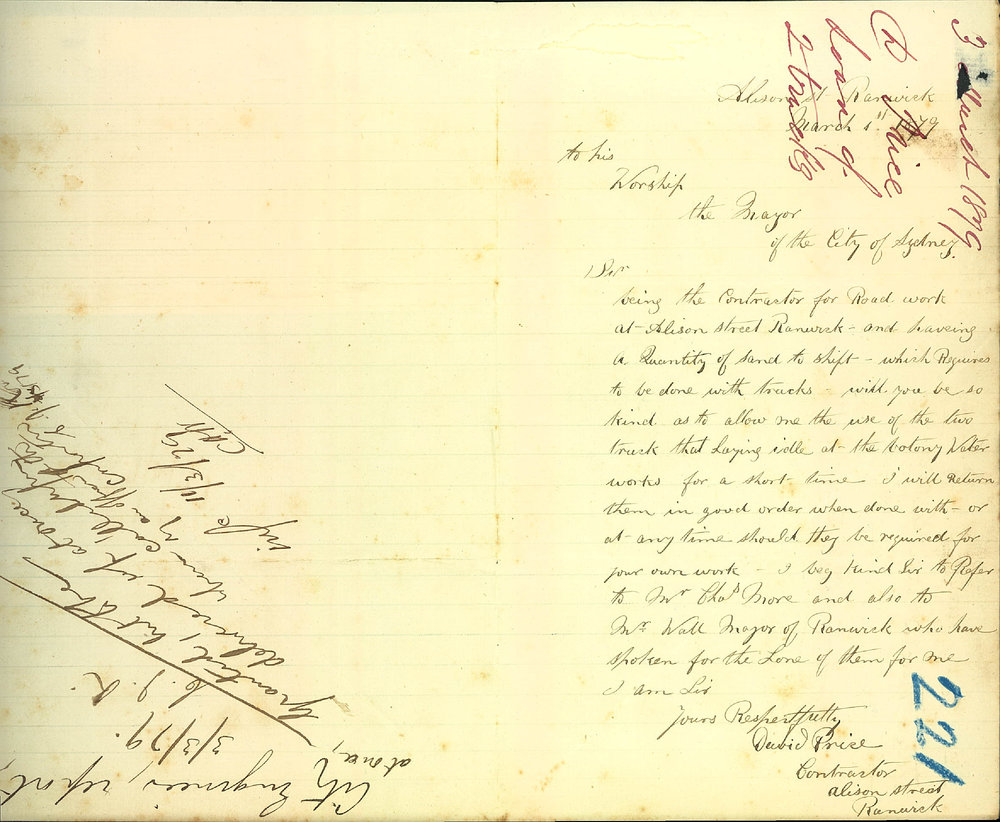 3 March 1879
D Price
Loan of
2 trucks
Alison st Ranwick
March 1st 1879
to his
Worship
the Mayor
of the City of Sydney.
Sir
being the Contractor for Road work
at Alison street Ranwick - and haveing
a Quantity of sand to shift - which Requires
to be done with trucks - will you be so
kind as to allow me the use of the two
truck that Laying idle at the Botony Water
works for a short time I will Return
them in good order when done with - or
at any time should they be required for
your own work - I beg Kind Sir to Refer
to Mr Chas More and also to
Mr Wall Mayor of Ranwick who have
spoken for the Lone of them for me
I am Sir
Yours Respectfully
David Prise
Contractor
alison street
Ranwick
221
City Engineer, report,
at once,
3/3/79.
Granted, but
delivered up at once
when called upon
11/3/79